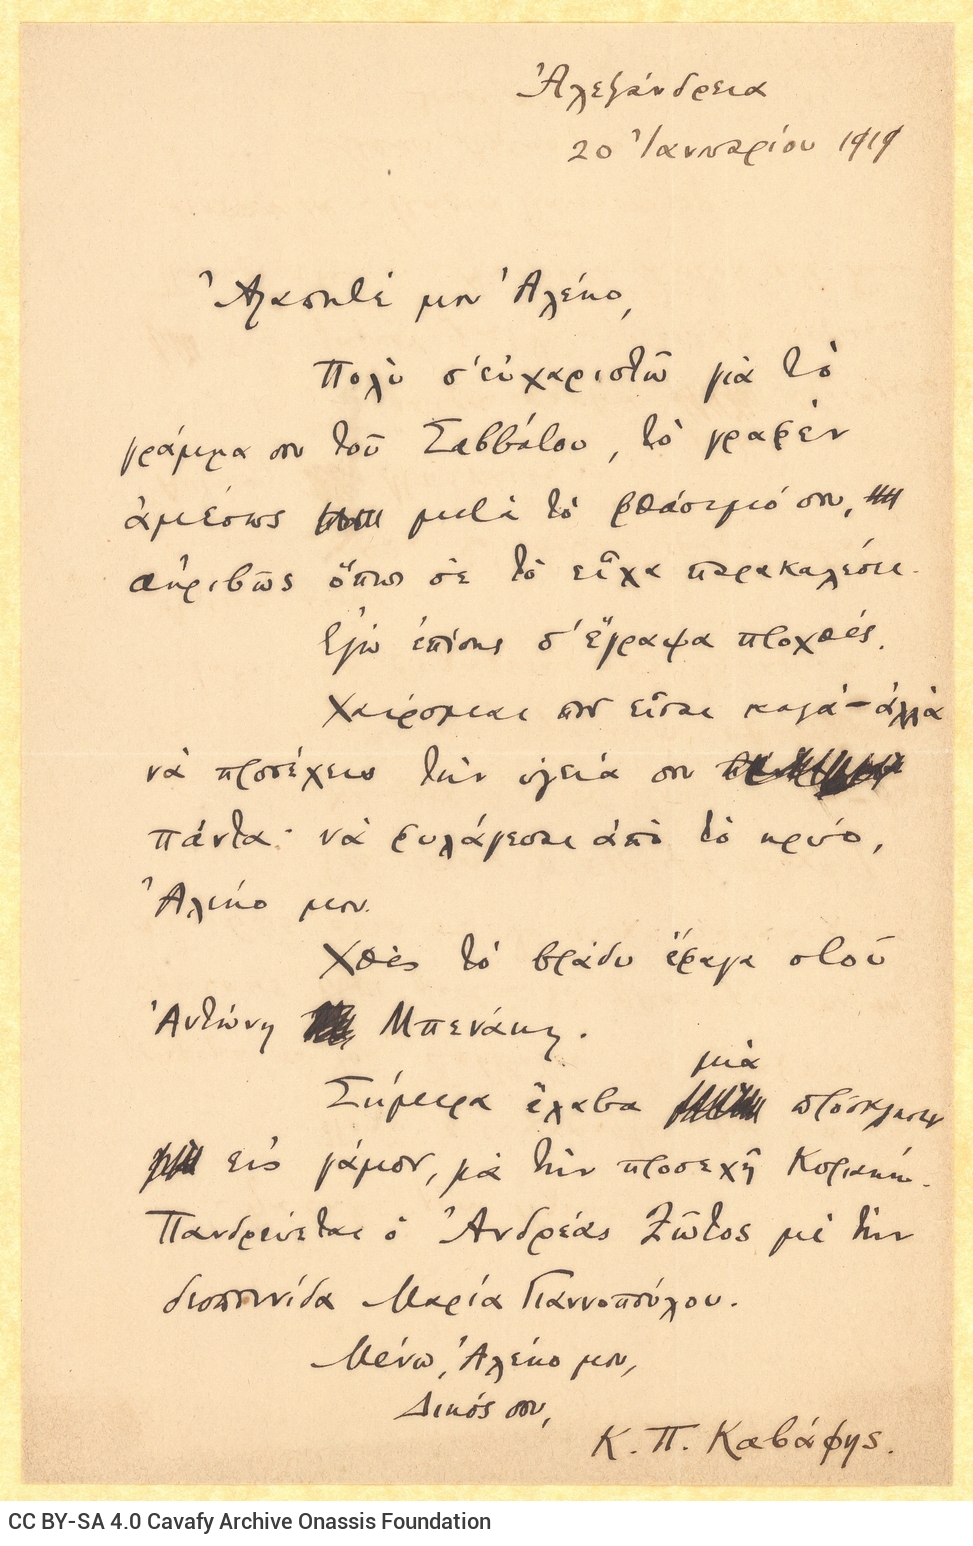 Ἀλεξάνδρεια
20 Ἰανουαρίου 1919
Ἀγαπητέ μου Ἀλέκο,
Πολὺ σ' εὐχαριστῶ γιὰ τὸ
γράμμα σου τοῦ Σαββάτου, τὸ γραφὲν
ἀμέσως μετὰ τὸ φθάσιμό σου,
ἀκριβῶς ὅπως σὲ τὸ εἶχα παρακαλέσει.
Ἐγὼ ἐπίσης σ' ἔγραψα προχθές.
Χαίρομαι ποῦ εἶσαι καλά - ἀλλὰ
νὰ προσέχεις τὴν ὑγεία σου
πάντα· νὰ φυλάγεσαι ἀπὸ τὸ κρύο,
Ἀλέκο μου.
Χθὲς τὸ βράδυ ἔφαγα στοῦ
Ἀντώνη Μπενάκη.
Σήμερα ἔλαβα μιὰ πρόσκλησιν
εἰς γάμον, γιὰ τὴν προσεχῆ Κυριακή.
Πανδρεύεται ὁ Ἀνδρέας Ζῶτος μὲ τὴν
δεσποινίδα Μαρία Γιαννοπούλου.
Μένω, Ἀλέκο μου,
Δικός σου,
Κ. Π. Καβάφης.
CC BY-SA 4.0 Cavafy Archive Onassis Foundation